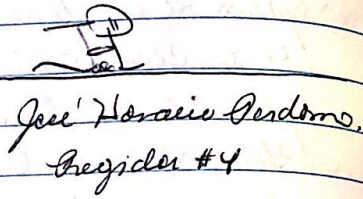 José Horacio Perdomo.
Regidor #4